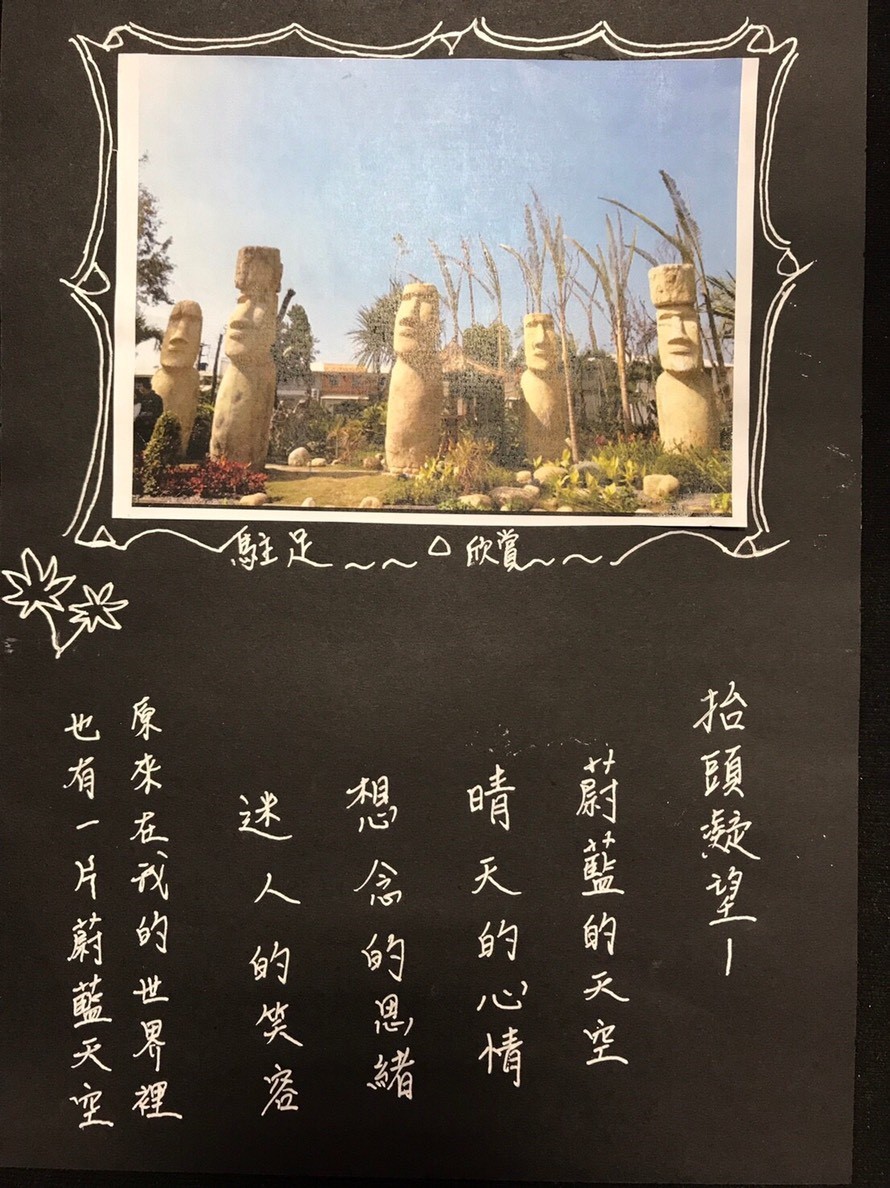 駐足～～△欣賞～～
抬頭凝望—
蔚藍的天空
晴天的心情
想念的思緒
迷人的笑容
原來在我的世界裡
也有一片蔚藍天空